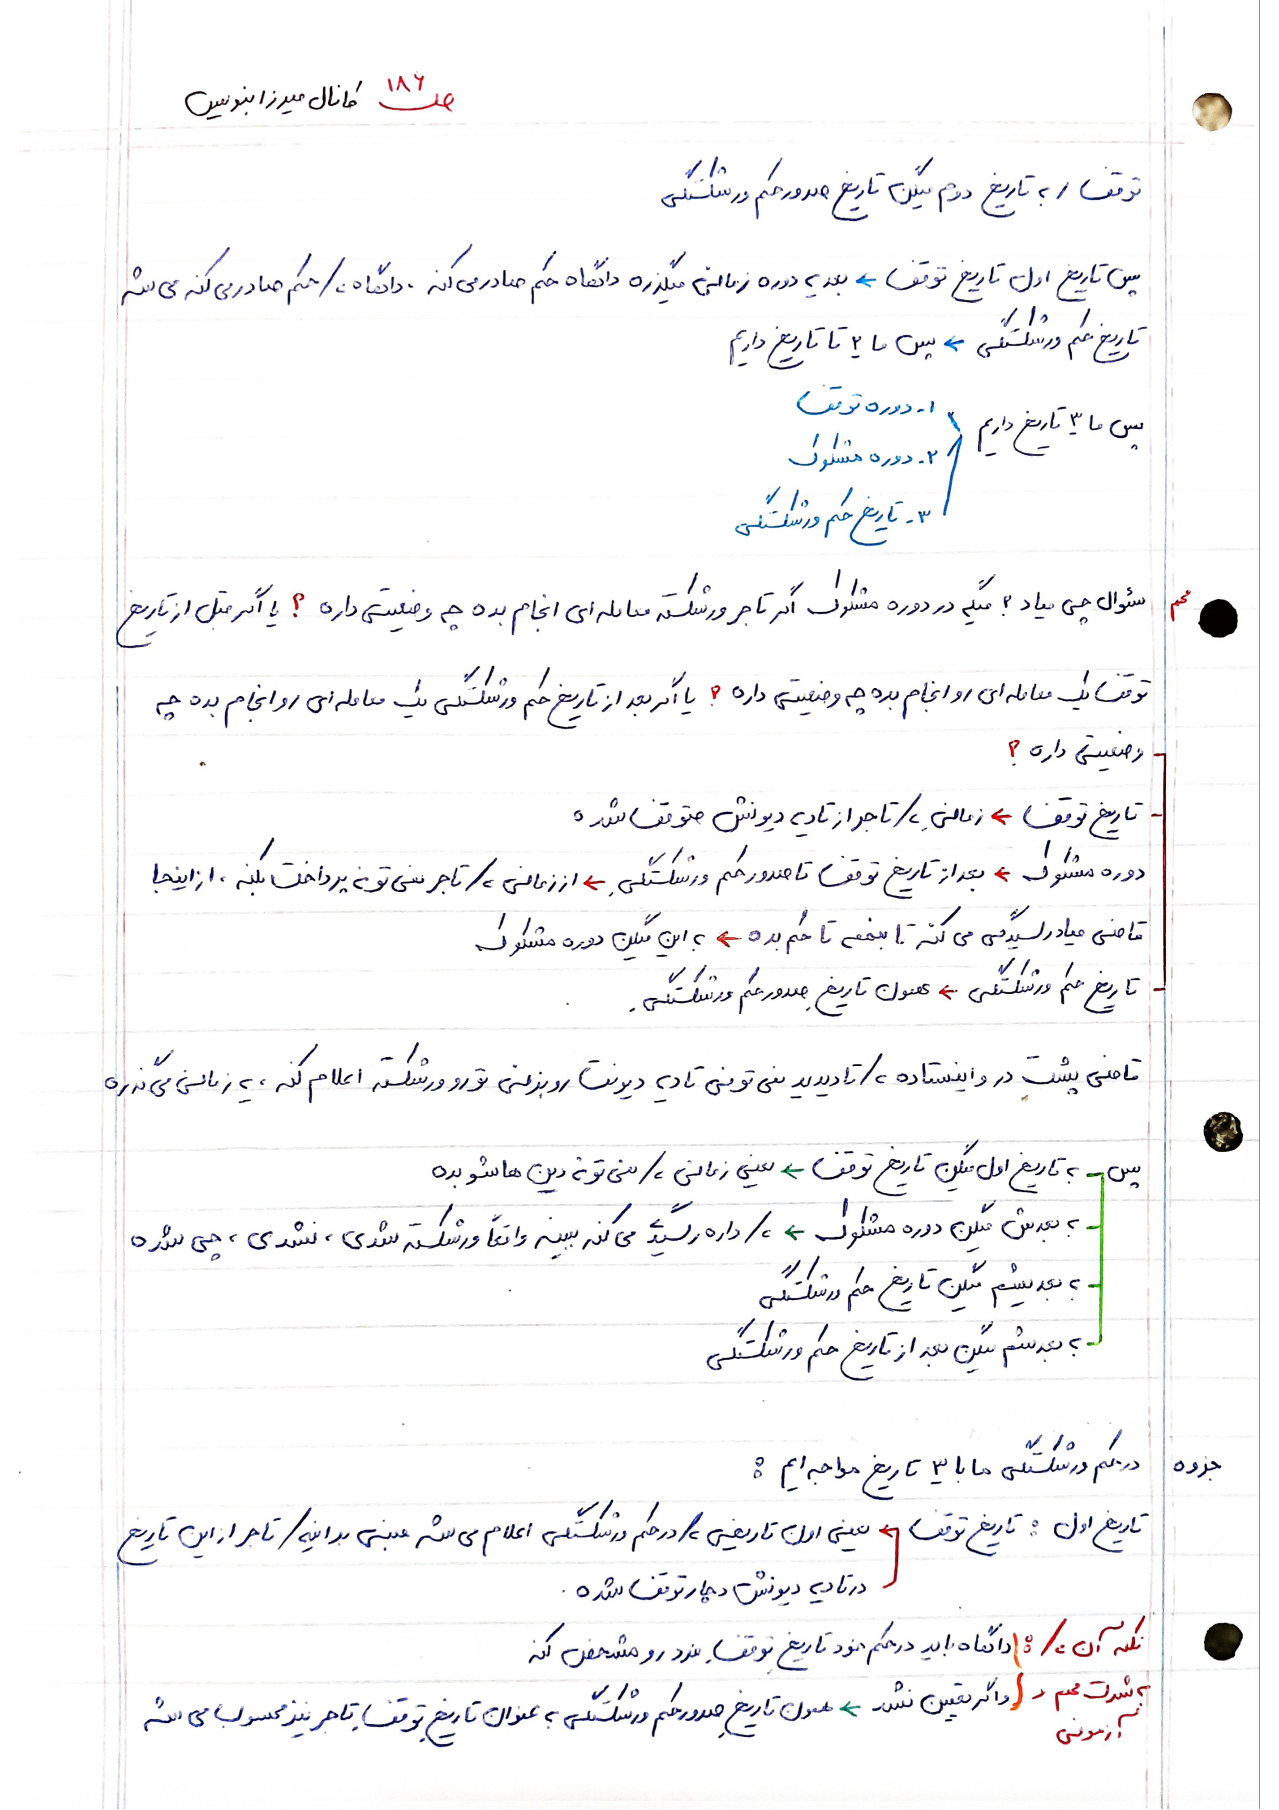 ص ۱۸۶ کانال میرزا بنویس
توقف / به تاریخ دوم میگن تاریخ صدور حکم ورشکستگی
پس تاریخ اول تاریخ توقف ← بعد یه دوره زمانی میگذره دادگاه حکم صادر می کنه ، دادگاه که حکم صادر می کنه می شه
تاریخ حکم ورشکستگی ← پس ما ۲ تا تاریخ داریم
پس ما ۳ تاریخ داریم
۱- دوره توقف
۲- دوره مشکوک
۳- تاریخ حکم ورشکستگی
مهم سئوال چی میاد ؟ میگه در دوره مشکوک اگر تاجر ورشکسته معامله ای انجام بده چه وضعیتی داره ؟ یا اگر قبل از تاریخ
توقف یک معامله ای رو انجام بده چه وضعیتی داره ؟ یا اگر بعد از تاریخ حکم ورشکستگی یک معامله ای رو انجام بده چه
وضعیتی داره ؟
تاریخ توقف ← زمانیِ که تاجر از تادیه دیونش متوقف شده
دوره مشکوک ← بعد از تاریخ توقف تا صدور حکم ورشکستگیِ ← از زمانی که تاجر نمی تونه پرداخت بکنه ، از اینجا
قاضی میاد رسیدگی می کنه تا بفهمه تا حکم بده ← به این میگن دوره مشکوک
تاریخ حکم ورشکستگی ← همون تاریخِ صدور حکم ورشکستگیِ .
قاضی پشت در وا اینستاده که تا دیدید نمی تونی تادیه دیونت رو بزنی تو رو ورشکسته اعلام کنه ، یه زمانی می گذره
پس به تاریخ اول میگن تاریخ توقف ← یعنی زمانی که نمی تونه دین هاشو بده
به بعدش میگن دوره مشکوک ← که داره رسیدگی می کنه ببینه واقعاً ورشکسته شدی ، نشدی ، چی شده
به بعدیشم میگن تاریخ حکم ورشکستگی
به بعدشم میگن بعد از تاریخ حکم ورشکستگی
جزوه در حکم ورشکستگی ما با ۳ تاریخ مواجه ایم :
تاریخ اول : تاریخ توقف ← یعنی اون تاریخی که در حکم ورشکستگی اعلام می شه مبنی بر اینکه تاجر از این تاریخ
در تادیه دیونش دچار توقف شده .
نکته آن که : دادگاه باید در حکم خود تاریخِ توقفِ مزد رو مشخص کنه
به شدت مهم و آزمونی و اگر تعیین نشد ← همون تاریخِ صدور حکم ورشکستگی به عنوان تاریخِ توقفِ تاجر نیز محسوب می شه